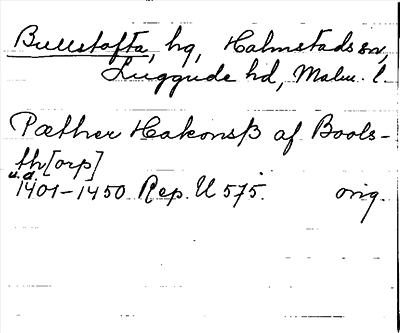 Bullstofta, hg, Halmstads sn,
Luggude hd, Malm. l.
Pæther Hakonsß af Bools-
th[orp]
u.d.
1401-1450 Rep. U 575. orig.